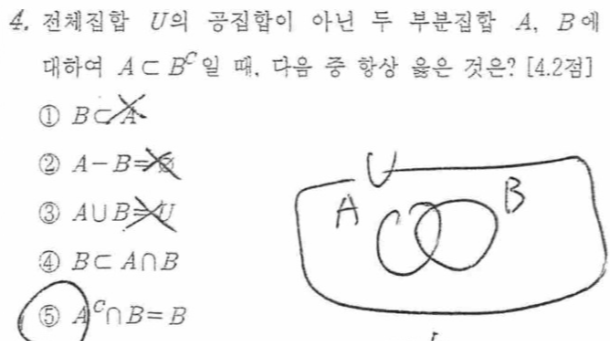 4. 전체집합 U의 공집합이 아닌 두 부분집합 A, B에
대하여 A⊂B^C일 때, 다음 중 항상 옳은 것은? [4.2점]
① B⊂A
② A-B=∅
③ A∪B=U
④ B⊂A∩B
⑤ A^C∩B=B
U
A
B